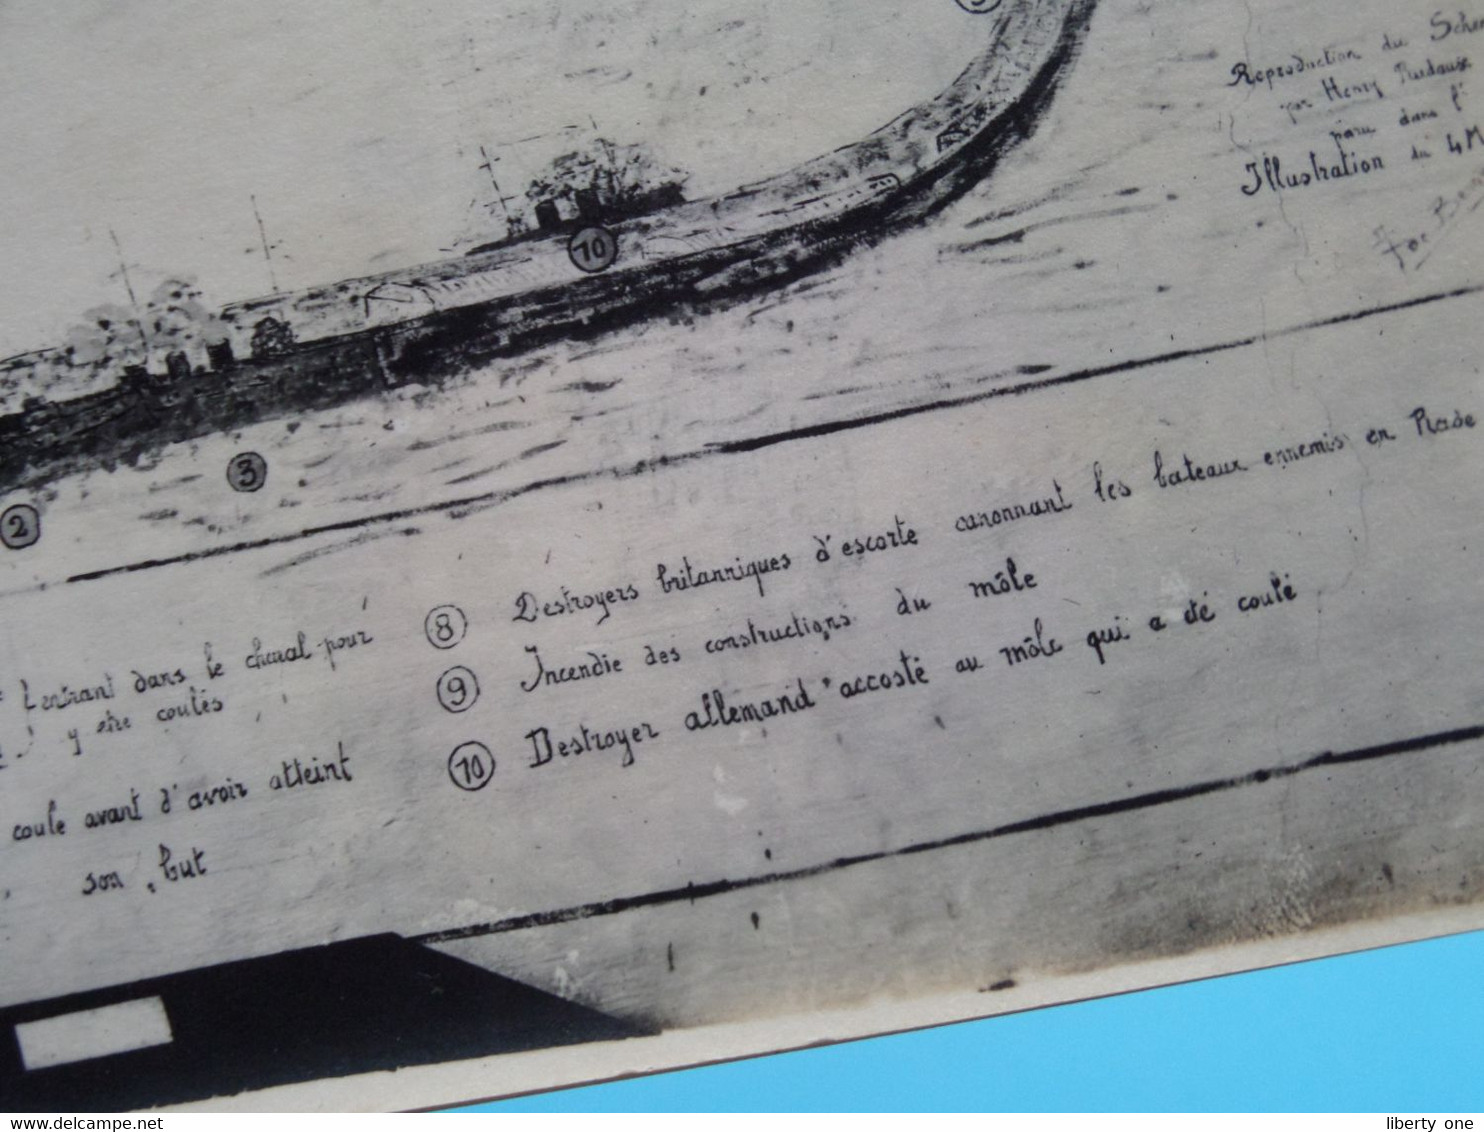 9
Reproduction du Schem
par Henry Rudaux
paru dans l'
Illustration du 4 M
10
3
2
entrant dans le chenal pour
y être coulés
coule avant d'avoir atteint
son but
8 Destroyers britanniques d'escorte canonnant les bateaux ennemis en Rade
9 Incendie des constructions du môle
10 Destroyer allemand accosté au môle qui a été coulé
www.delcampe.net
liberty_one